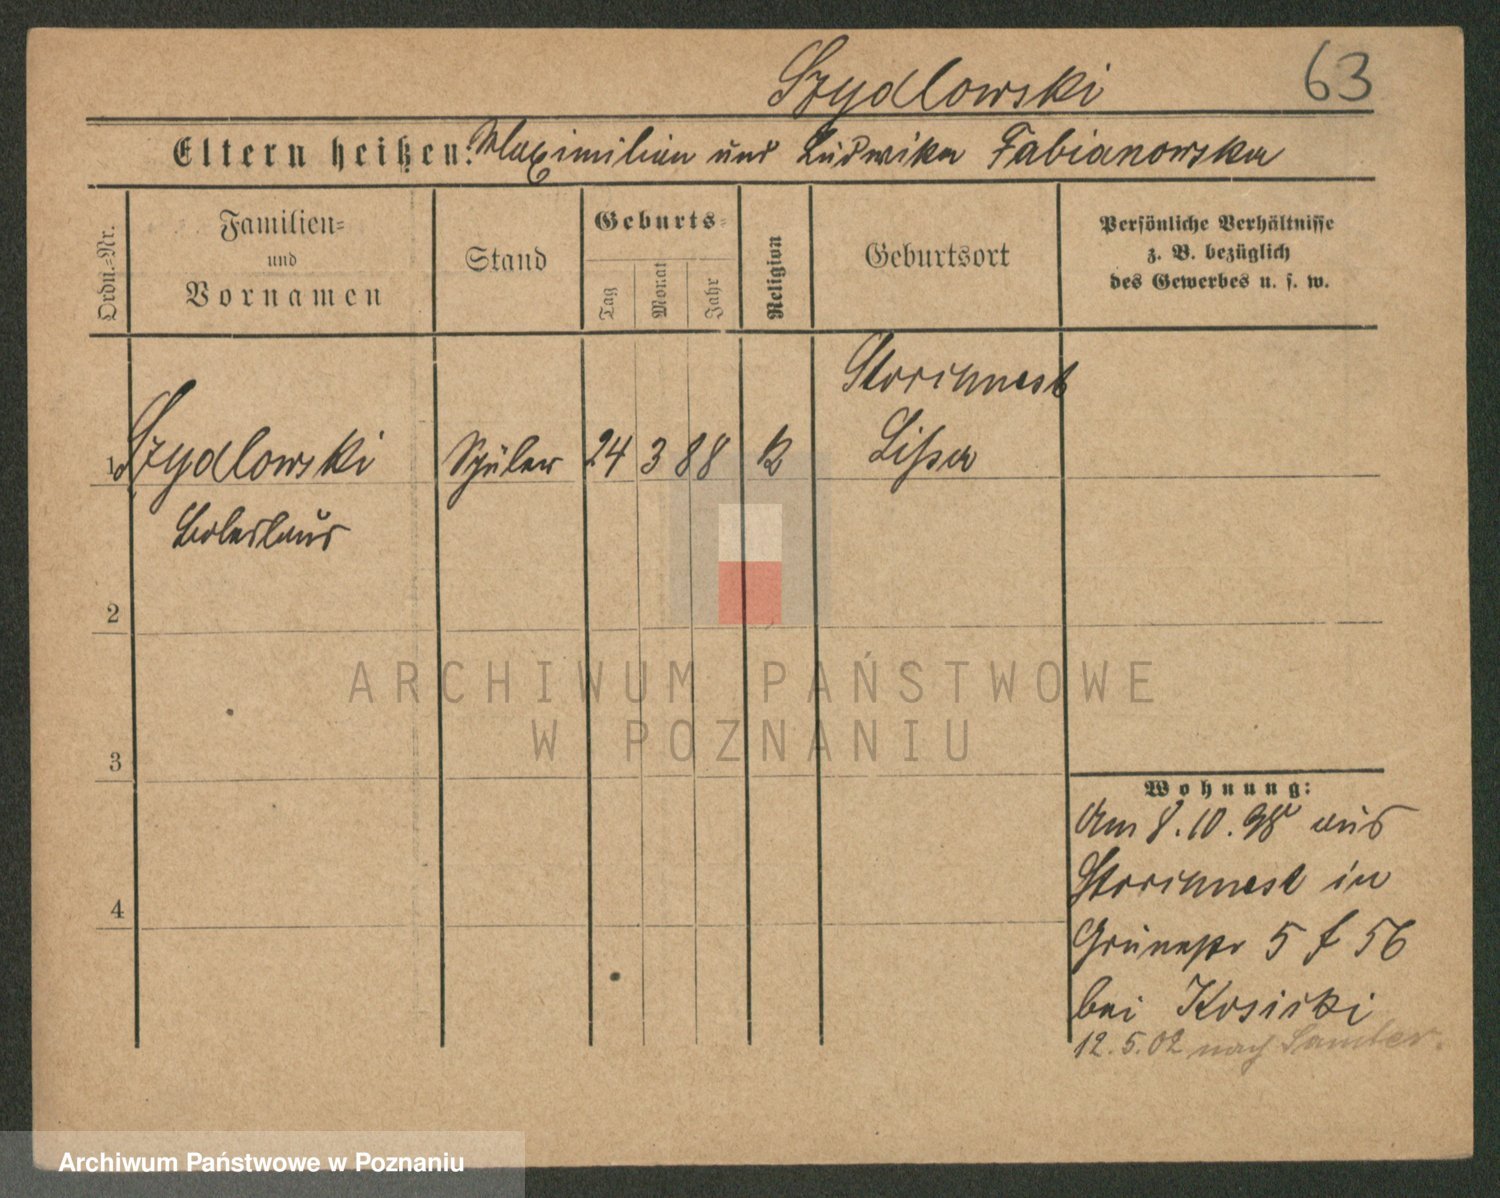 Szydlowski 63
Eltern heißen: Maximilian und Ludwika Fabianowska
Ordn.-Nr.
Familien-
und
Vornamen
Stand
Geburts-
Tag
Monat
Jahr
Religion
Geburtsort
Persönliche Verhältnisse
z. B. bezüglich
des Gewerbes u. s. w.
Storchnest
1 Szydlowski Schüler 24 3 88 K Lissa
Boleslaus
2
3
4
Wohnung:
Am 8.10.98 aus
Storchnest in
Grünestr 5 f 56
bei Kosicki
12.5.02 nach Samter.
ARCHIWUM PAŃSTWOWE
W POZNANIU
Archiwum Państwowe w Poznaniu